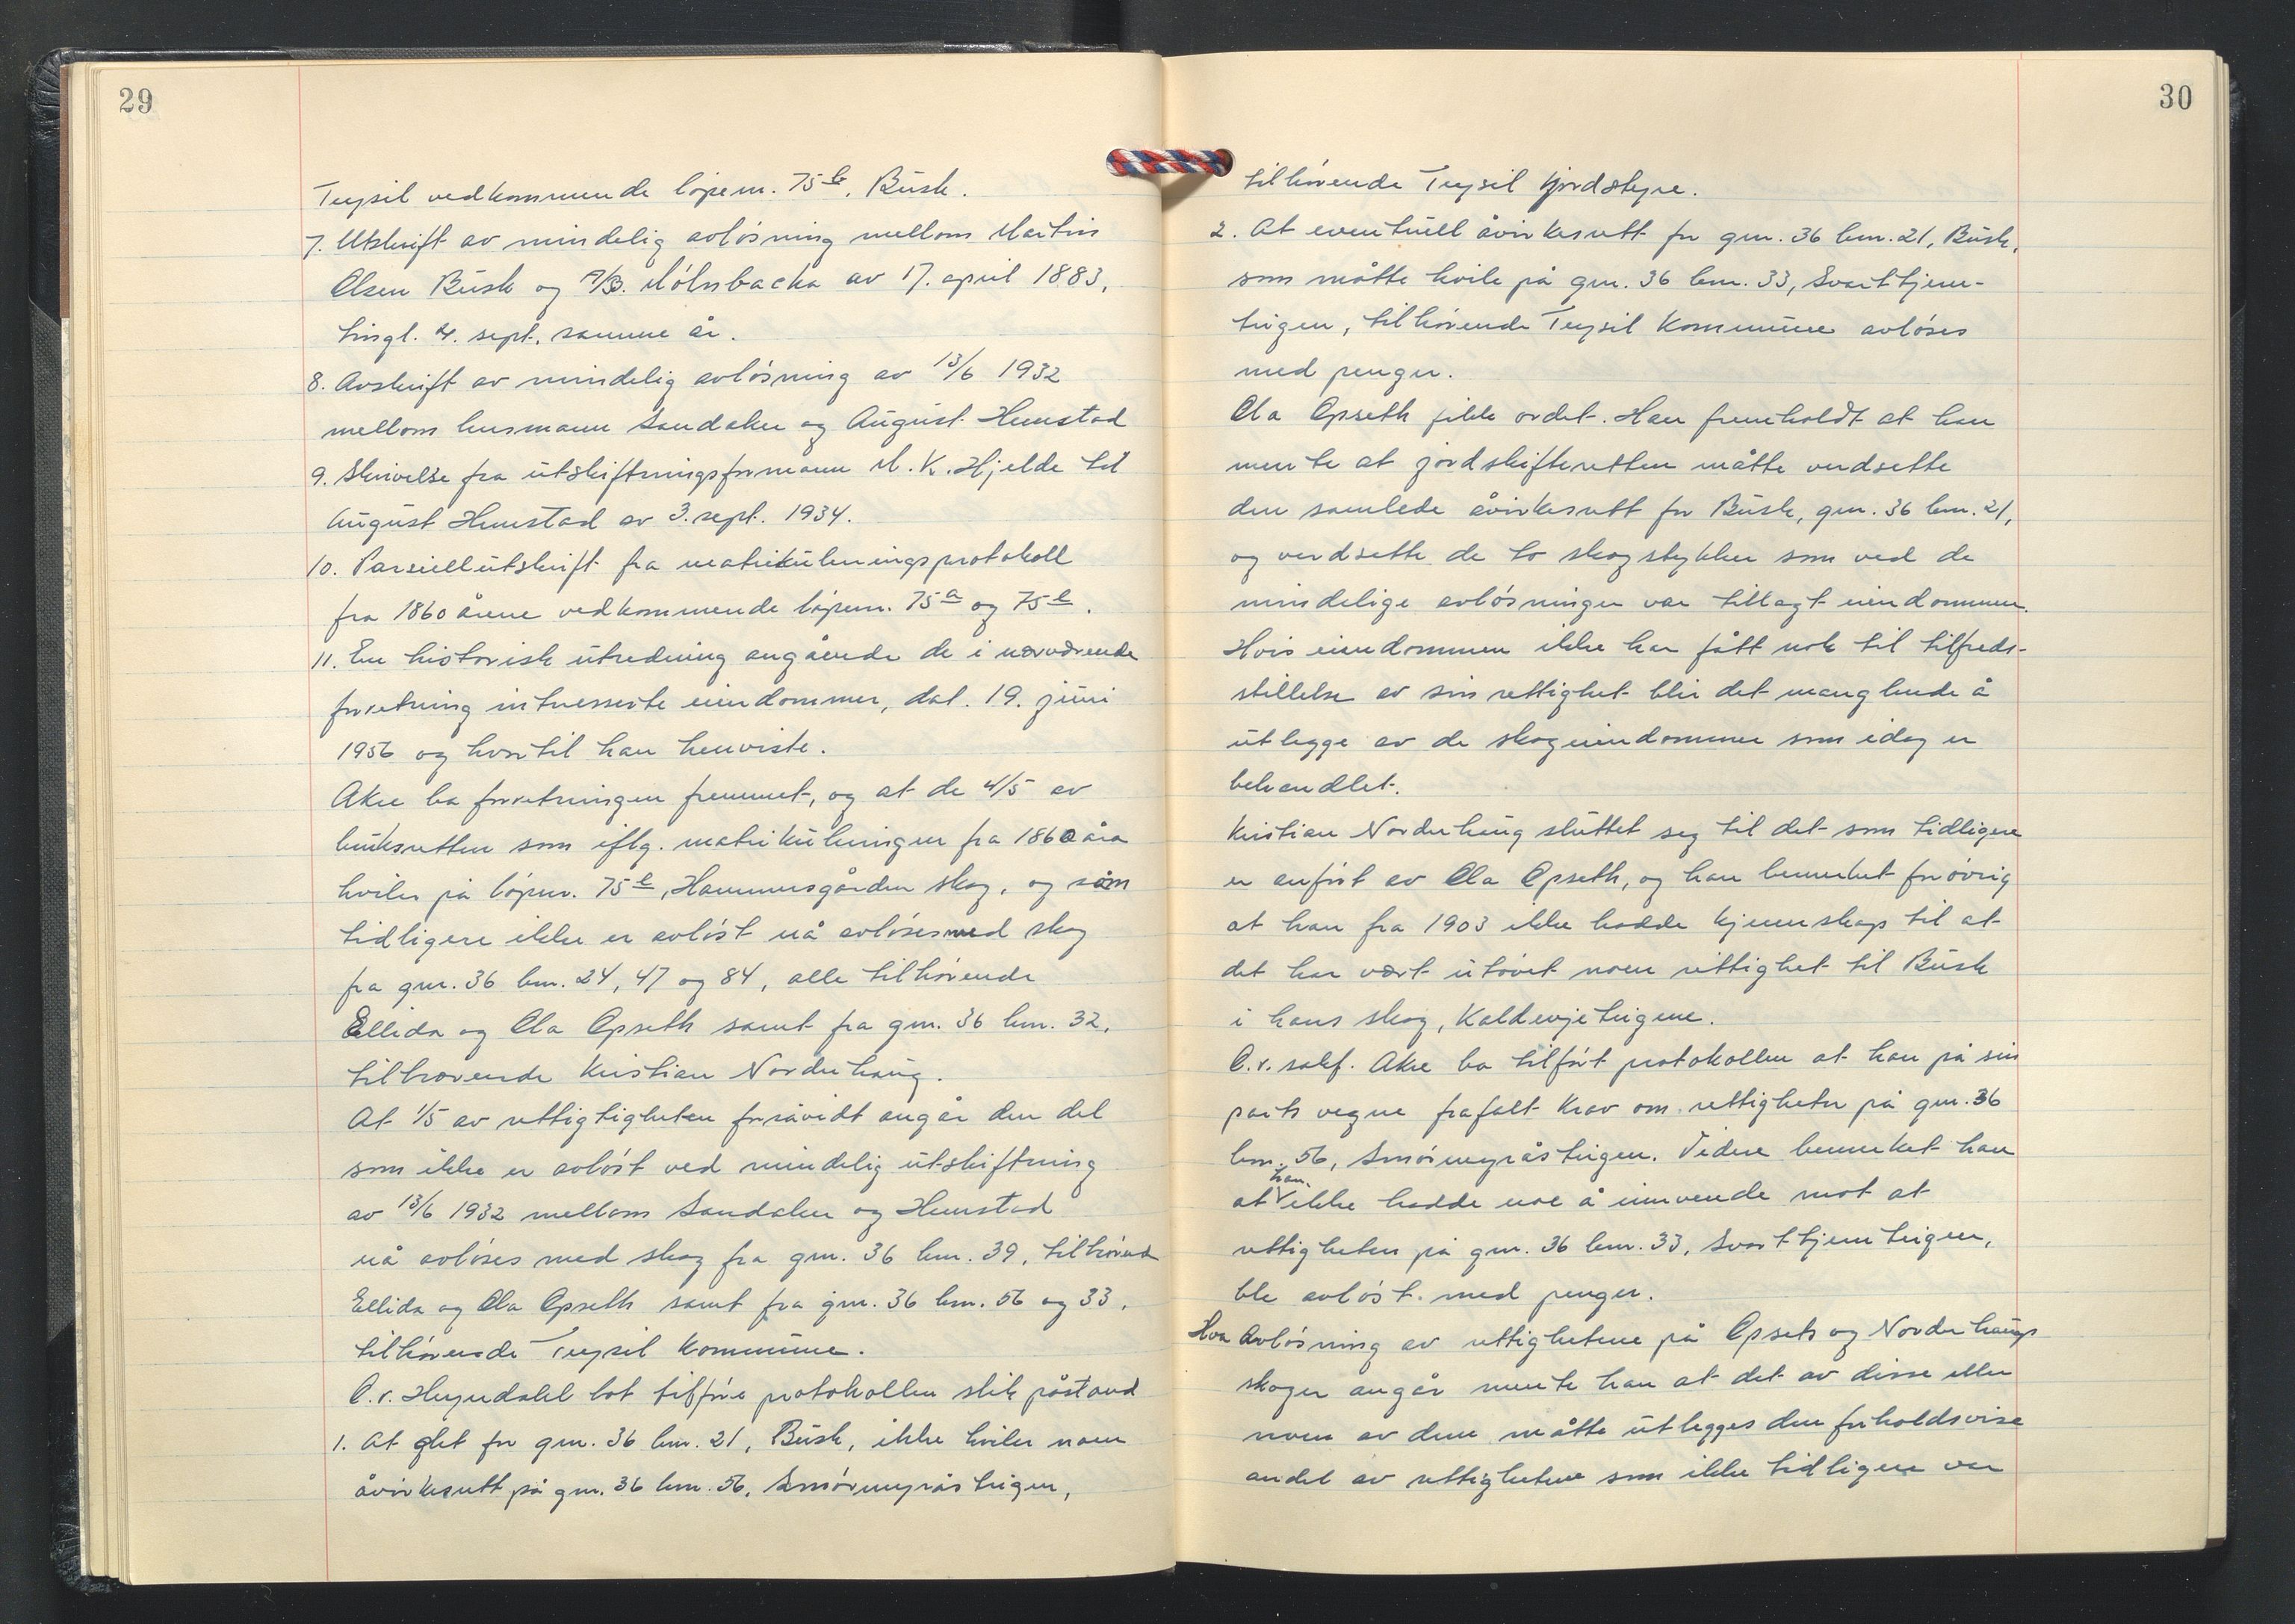 29
Trysil vedkommende löpenr. 75b, Busk.
7. Utskrift av mindelig avlösning mellom Martin
Olsen Busk og A/B. Mölnbacka av 17. april 1883,
tingl. 4. sept. samme år.
8. Avskrift av mindelig avlösning av 13/6 1932
mellom husmann Sandaker og August Hemstad
9. Skrivelse fra utskiftningsformann M. K. Hjelde til
August Hemstad av 3. sept. 1934.
10. Parsiellutskrift fra matrikuleringsprotokoll
fra 1860 årene vedkommende löpenr. 75a og 75e.
11. En historisk utredning angående de i nærværende
forretning interesserte eiendommer, dat. 19. juni
1956 og hvortil han henviste.
Akre ba forretningen fremmet, og at de 4/5 av
bruksretten som iflg. matrikuleringen fra 1860 åra
hviler på löpenr. 75e, Hammersgården skog, og som
tidligere ikke er avlöst nå avlöses med skog
fra gnr. 36 bnr. 24, 47 og 84, alle tilhörende
Ellida og Ola Opseth samt fra gnr. 36 bnr. 32,
tilhörende Kristian Norderhaug.
At 1/5 av rettigtigheten forsåvidt angår den del
som ikke er avlöst ved mindelig utskiftning
av 13/6 1932 mellom Sandaker og Hemstad
nå avlöses med skog fra gnr. 36 bnr. 39, tilhörend
Ellida og Ola Opseth samt fra gnr. 36 bnr. 56 og 33,
tilhörende Trysil kommune.
O.r. Heyerdahl lot tilföre protokollen slik påstand
1. At det for gnr. 36 bnr. 21, Busk, ikke hviler noen
åvirkesrett på gnr. 36 bnr. 56, Smörmyråsteigen,
30
tilhörende Trysil jordstyre.
2. At eventuell åvirkesrett for gnr. 36 bnr. 21, Busk,
som måtte hvile på gnr. 36 bnr. 33, Svarttjern-
teigen, tilhörende Trysil kommune avlöses
med penger.
Ola Opseth fikk ordet. Han fremholdt at han
mente at jordskifteretten måtte verdsette
den samlede åvirkesrett for Busk, gnr. 36 bnr. 21,
og verdsette de to skogstykker som ved de
mindelige avlösninger var tillagt eiendommen.
Hvis eiendommen ikke har fått nok til tilfreds-
stillelse av sin rettighet blir det manglende å
utlegge av de skogeiendommer som idag er
behandlet.
Kristian Norderhaug sluttet seg til det som tidligere
er anfört av Ola Opseth, og han bemerket forövrig
at han fra 1903 ikke hadde kjennskap til at
det har vært utövet noen rettighet til Busk
i hans skog, Kaldevjeteigene.
O.r. sakf. Akre ba tilfört protokollen at han på sin
parts vegne frafalt krav om rettigheter på gnr. 36
bnr. 56, Smörmyråsteigen. Videre bemerket han
at han ikke hadde noe å innvende mot at
rettigheten på gnr. 36 bnr. 33, Svarttjernteigen,
ble avlöst med penger.
Hva avlösning av rettighetene på Opsets og Norderhaugs
skoger angår mente han at det av disse eller
noen av dem måtte utlegges den forholdsvise
andel av rettighetene som ikke tidligere var